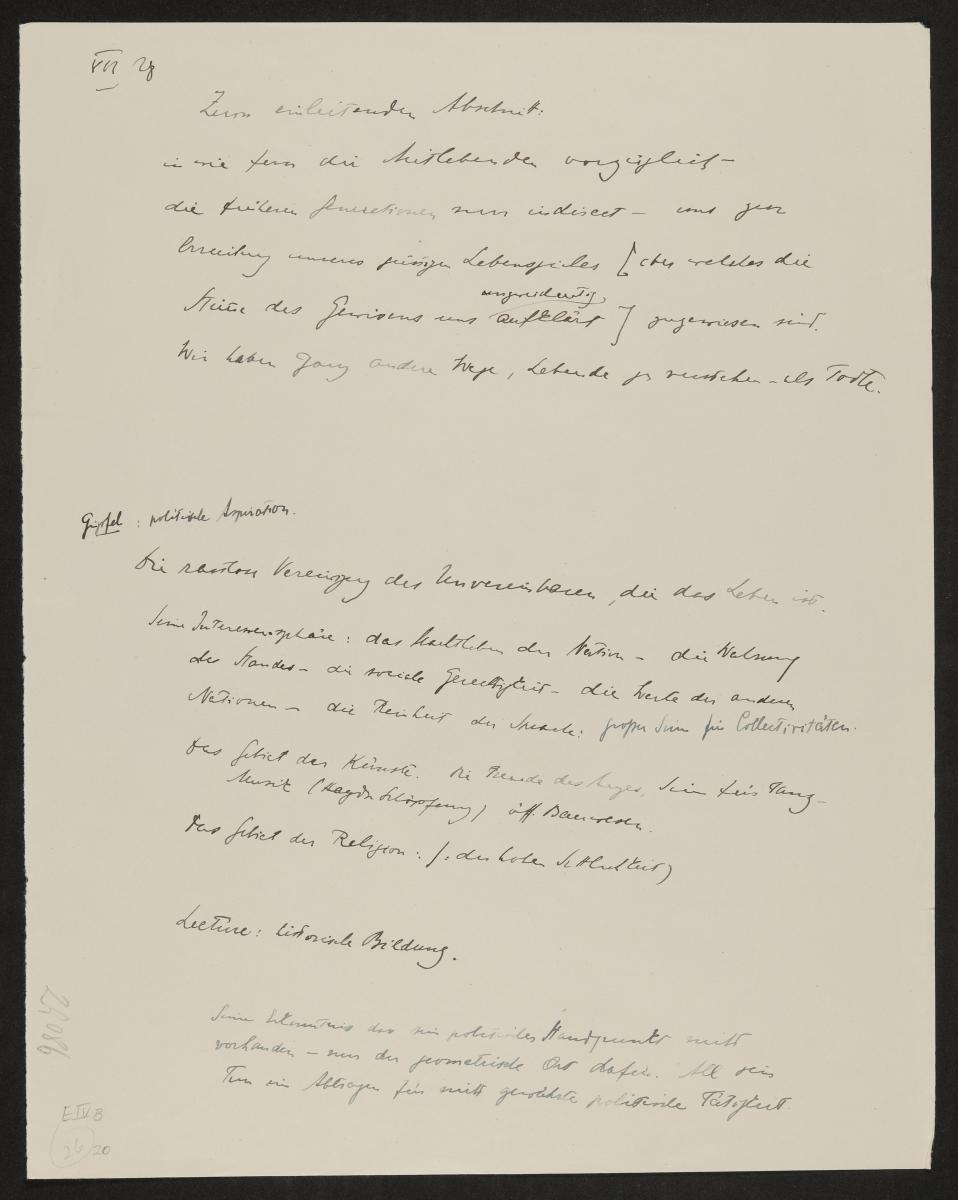 VII 28
Zum einleitenden Abschnitt:
in wie fern die Mitlebenden vorzüglich –
die früheren Generationen nur indirect – uns zur
unseres Lebens [ über welches die
unzweideutig
Stimme des Gewissens uns aufklärt ] zugewiesen sind.
Wir haben ganz andere Wege, Lebende zu verstehen – als Todte.
Gipfel : politische Aspiration.
Die Vereinigung des Unvereinbaren, die das Leben ist.
Seine Interessensphäre: das Staatsleben der Nation – die Wahrung
des Standes – die sociale Gerechtigkeit – die Werte der anderen
Nationen – die Reinheit der Sprache: großer Sinn für Collectivitäten.
Das Gebiet der Künste. Die Freude des Auges, Sinn für Tanz –
Musik (Haydn Schöpfung) öff. Bauwesen.
Das Gebiet der Religion: (: der hohen Sittlichkeit)
Lecture: historische Bildung.
Seine Erkenntnis das sein politischer Standpunkt nicht
vorhanden – nur der geometrische Ort dafür. All sein
Tun ein Abtragen für nicht gewährte politische Tätigkeit.
E IV B
26 20